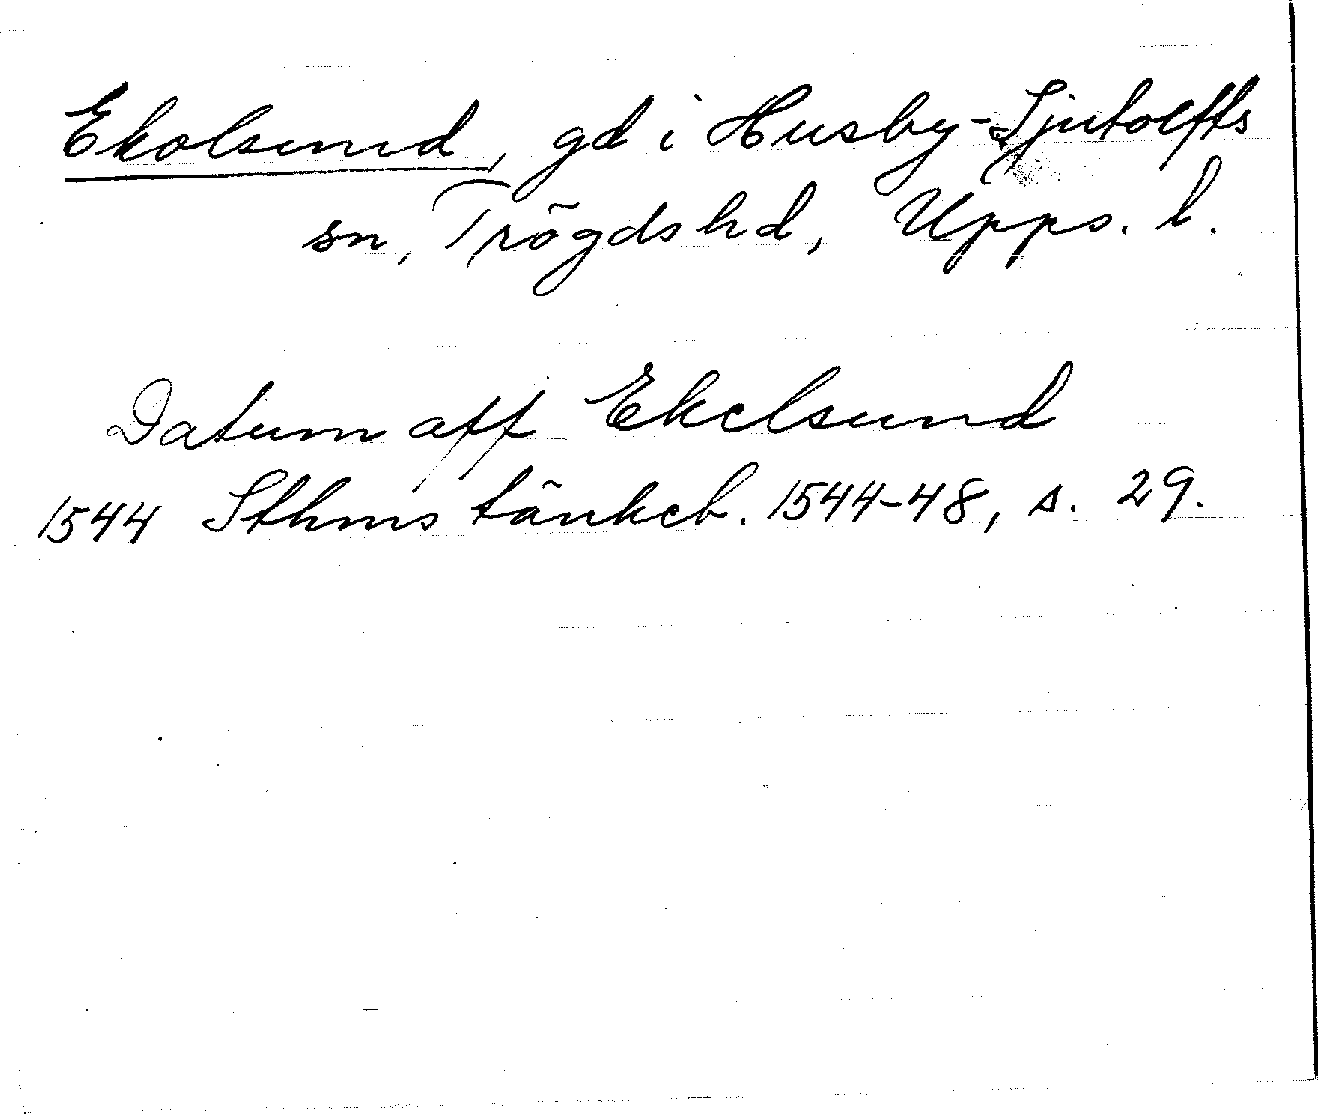 Ekolsund, gd i Husby-Sjutolfts
sn, Trögds hd, Upps. l.
Datum aff Ekelsund
1544 Sthms tänkeb. 1544-48, s. 29.